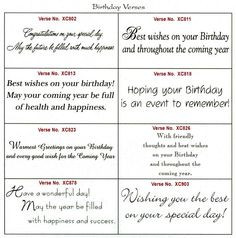 Birthday Verses
Verse No. XC802
Congratulations on your special day
May the future be filled with much happiness
Verse No. XC811
Best wishes on your Birthday
and throughout the coming year
Verse No. XC813
Best wishes on your birthday!
May your coming year be full
of health and happiness.
Verse No. XC818
Hoping your Birthday
is an event to remember!
Verse No. XC823
Warmest Greetings on your Birthday
and every good wish for the Coming Year
Verse No. XC826
With friendly
thoughts and best wishes
on your Birthday
and throughout the
coming year.
Verse No. XC878
Have a wonderful day!
May the year be filled
with happiness and success.
Verse No. XC903
Wishing you the best
on your special day!